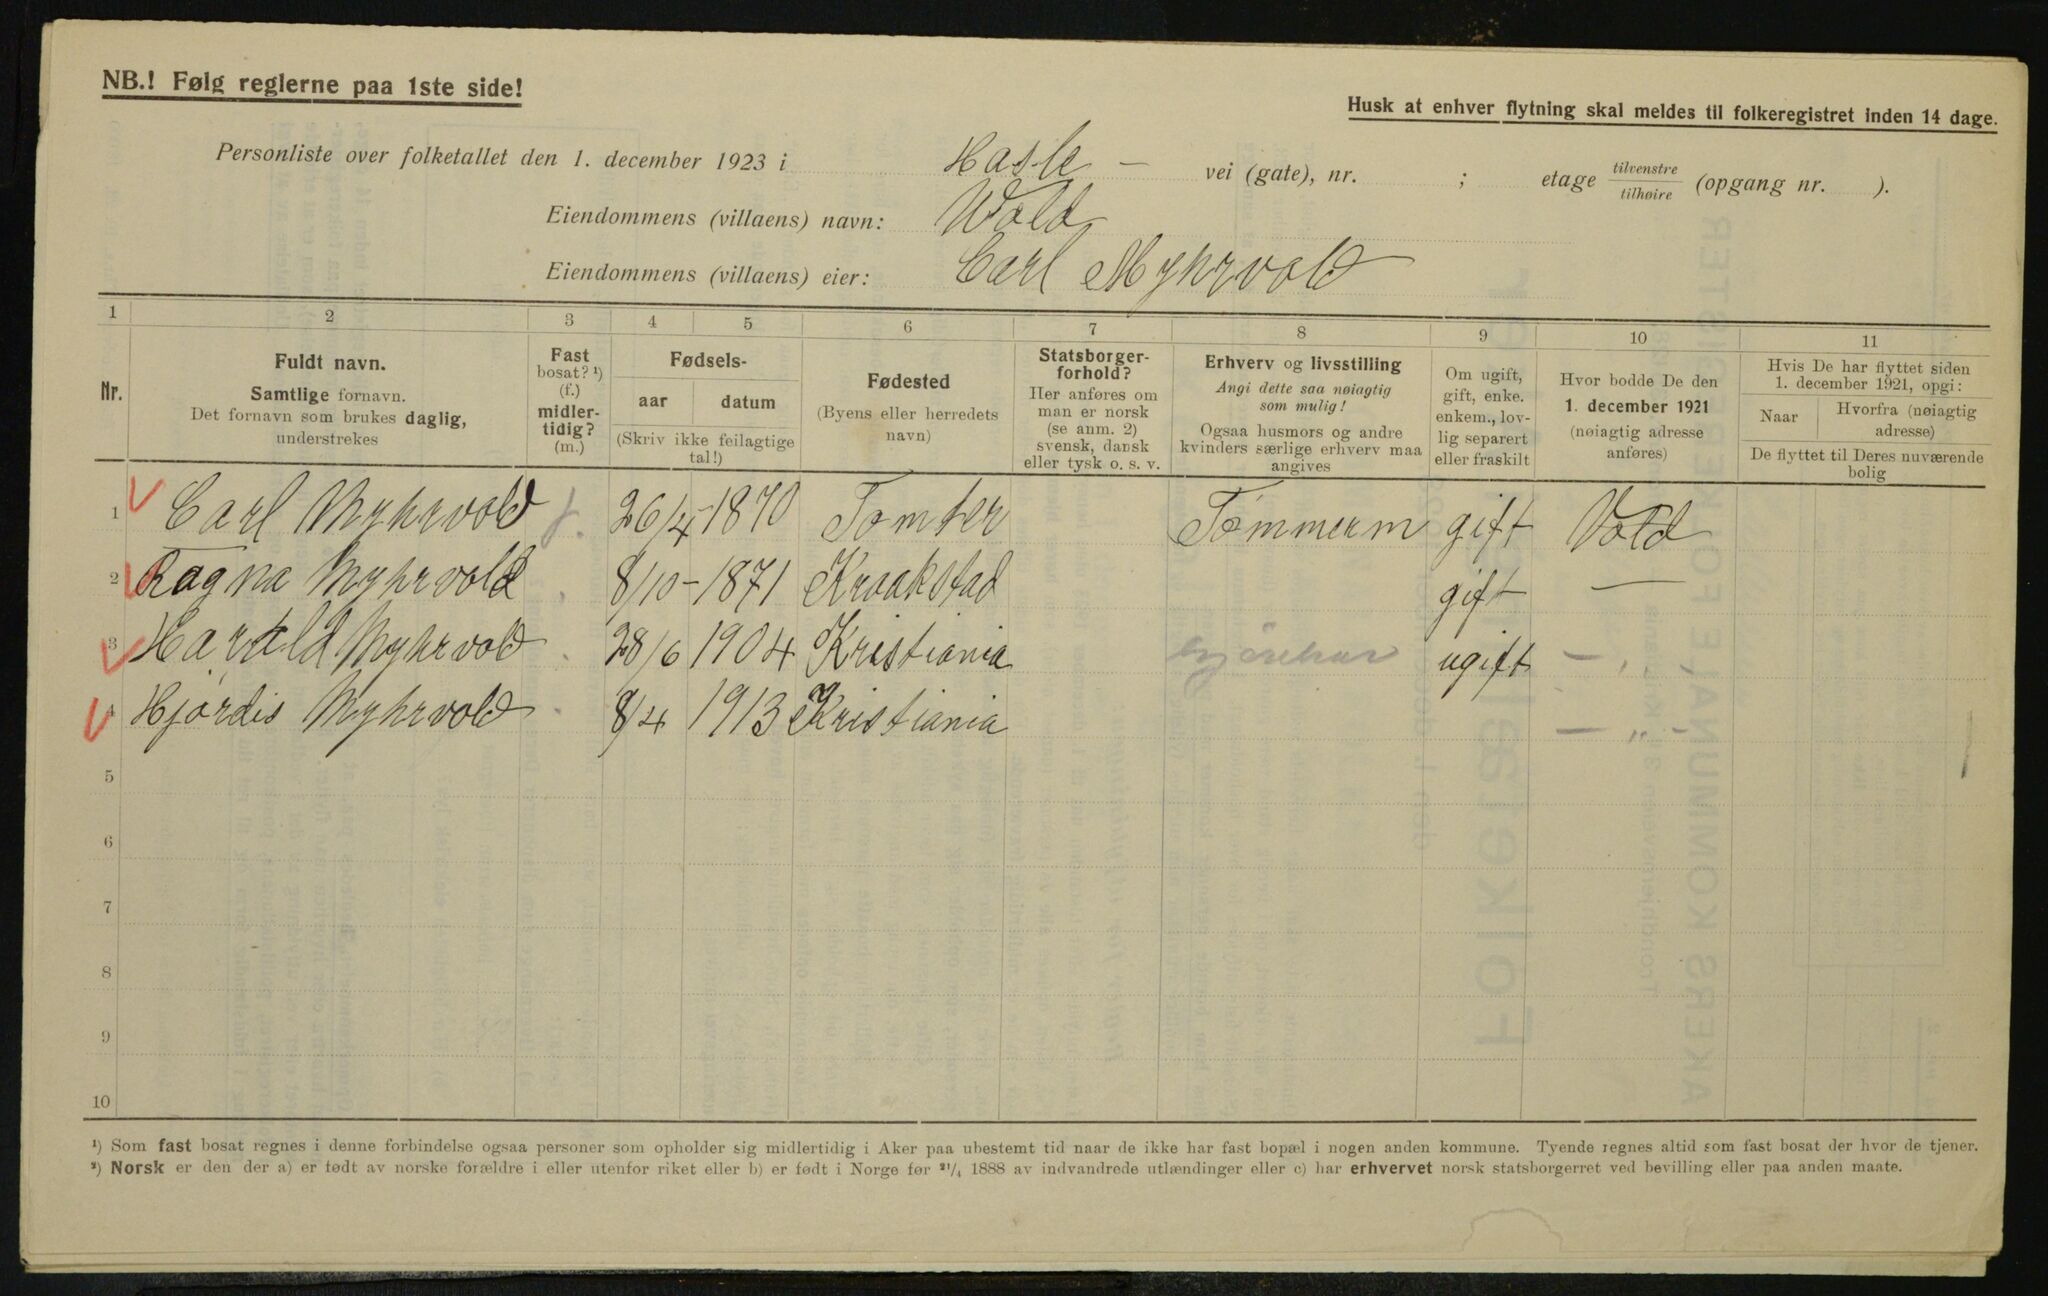 NB.! Følg reglerne paa 1ste side!
Husk at enhver flytning skal meldes til folkeregistret inden 14 dage.
Personliste over folketallet den 1. december 1923 i Hasle - vei (gate), nr. ; etage tilvenstre tilhøire (opgang nr. ).
Eiendommens (villaens) navn: Wold
Eiendommens (villaens) eier: Carl Myhrvold
1 2 3 4 5 6 7 8 9 10 11
Nr.
Fuldt navn.
Samtlige fornavn.
Det fornavn som brukes daglig,
understrekes
Fast
bosat? ¹)
(f.)
midler-
tidig?
(m.)
Fødsels-
aar datum
(Skriv ikke feilagtige
tal!)
Fødested
(Byens eller herredets
navn)
Statsborger-
forhold?
Her anføres om
man er norsk
(se anm. 2)
svensk, dansk
eller tysk o. s. v.
Erhverv og livsstilling
Angi dette saa nøiagtig
som mulig!
Ogsaa husmors og andre
kvinders særlige erhverv maa
angives
Om ugift,
gift, enke.
enkem., lov-
lig separert
eller fraskilt
Hvor bodde De den
1. december 1921
(nøiagtig adresse
anføres)
Hvis De har flyttet siden
1. december 1921, opgi:
Naar Hvorfra (nøiagtig
adresse)
De flyttet til Deres nuværende
bolig
1 Carl Myhrvold f. 26/4-1870 Tomter Tømmerm gift Vold
2 Ragna Myhrvold 8/10-1871 Kraakstad gift —
3 Harald Myhrvold 28/6 1904 Kristiania ugift - " -
4 Hjørdis Myhrvold 8/4 1913 Kristiania - " -
5
6
7
8
9
10
¹) Som fast bosat regnes i denne forbindelse ogsaa personer som opholder sig midlertidig i Aker paa ubestemt tid naar de ikke har fast bopæl i nogen anden kommune. Tyende regnes altid som fast bosat der hvor de tjener.
²) Norsk er den der a) er født av norske forældre i eller utenfor riket eller b) er født i Norge før ²¹/₄ 1888 av indvandrede utlændinger eller c) har erhvervet norsk statsborgerret ved bevilling eller paa anden maate.